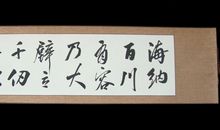 海納
百川
有容
乃大
壁立
千仞